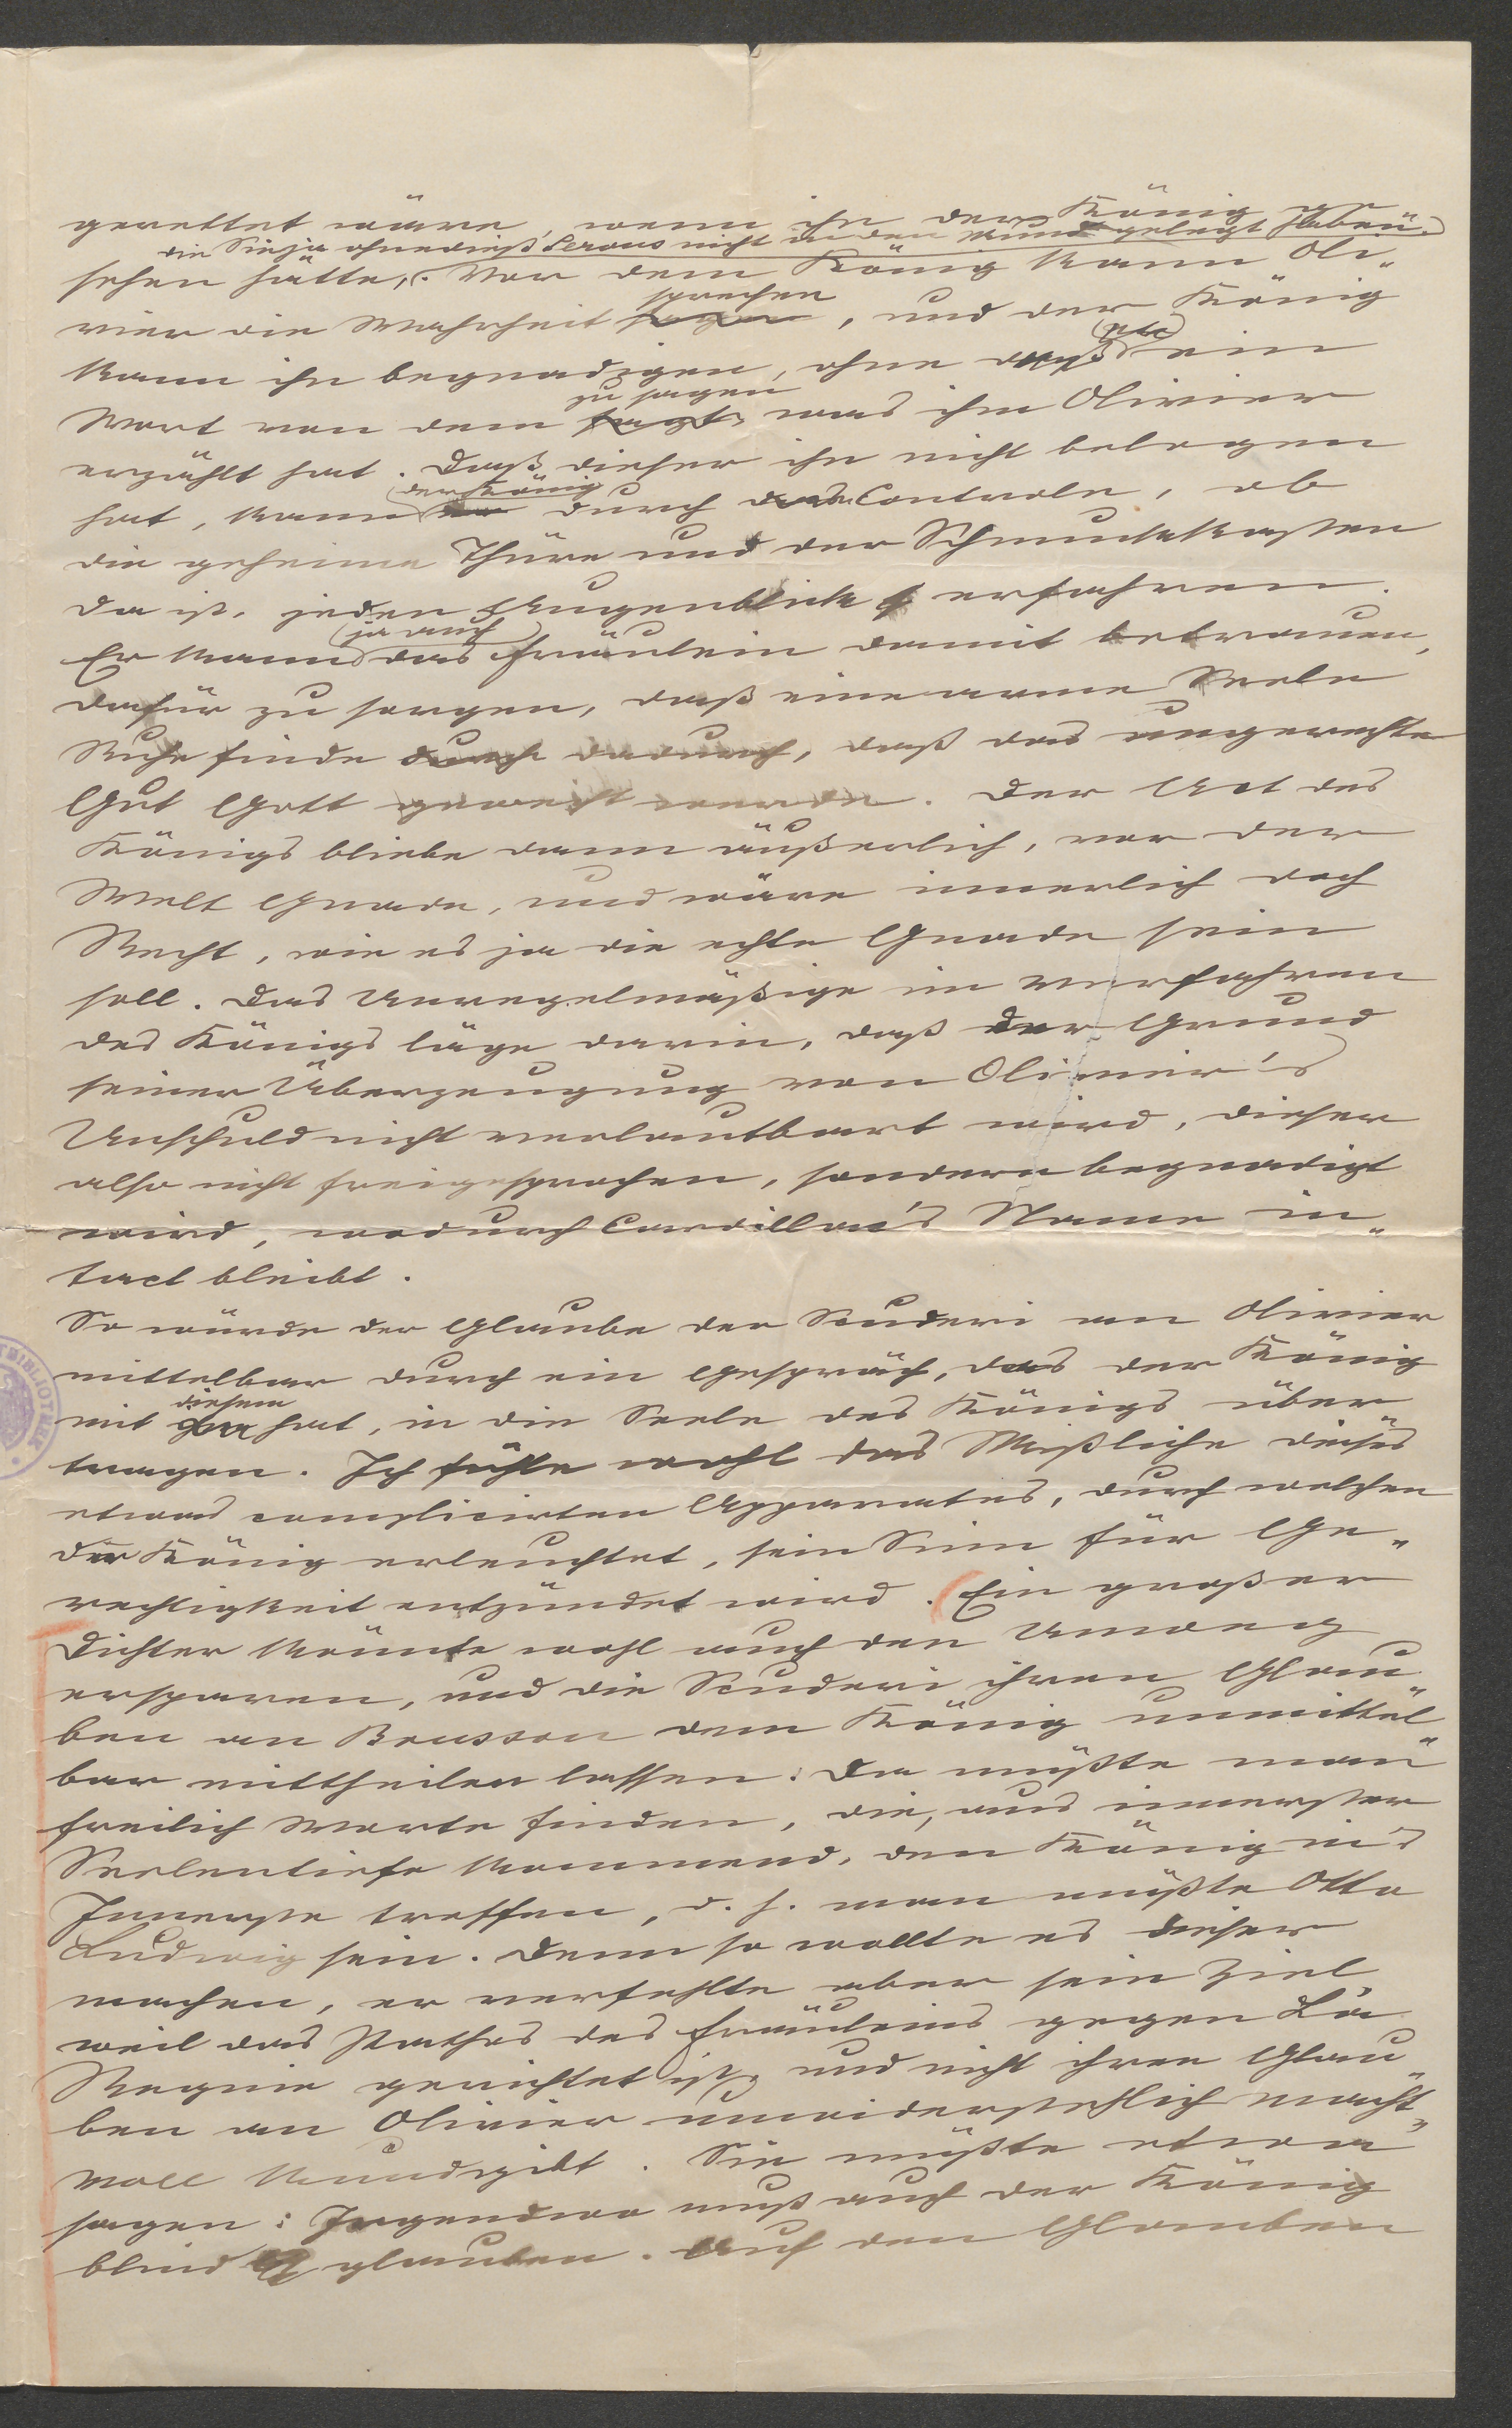 gerettet wäre, wenn ihn der König ge-
die Sie ja ohnedieß Serons nicht in den Mund gelegt haben.
sehen hätte, Vor dem König kann Oli-
sprechen
vier die Wahrheit sagen, und der König
kann ihn begnadigen, ohne daß etc ein
zu sagen
Wort von dem sagt, was ihm Olivier
erzählt hat. Daß dieser ihn nicht belogen
der König
hat, kann er durch das Controle, ob
die geheime Thüre und der Schmuckkasten
da ist, jeden Augenblick erfahren.
ja auch
Er kann das Fräulein damit betrauen,
dafür zu sorgen, daß eine arme Seele
Ruhe finde durch dadurch, daß das ungerechte
Gut Gott geweiht werde. Der Act des
Königs bliebe dann äußerlich, vor der
Welt Gnade, und wäre innerlich doch
Recht, wie es ja die echte Gnade sein
soll. Das Unregelmäßige im Verfahren
des Königs läge darin, daß der Grund
seiner Überzeugung von Olivier's
Unschuld nicht verlautbart wird, dieser
also nicht freigesprochen, sondern begnadigt
wird, wodurch Cardillac's Name in-
tact bleibt.
So würde der Glaube der Scuderi an Olivier
mittelbar durch ein Gespräch, das der König
diesem
mit hat, in die Seele des Königs über
tragen. Ich fühle wohl das Mißliche dieses
etwas complicirten Apparates, durch welchen
der König erleuchtet, sein Sinn für Ge-
rechtigkeit entzündet wird. Ein großer
Dichter könnte wohl auch den Umweg
ersparen, und die Scuderi ihren Glau-
ben an Brusson dem König unmittel-
bar mittheilen lassen. Da müßte man
freilich Worte finden, die, aus innerster
Seelentiefe kommend, den König in's
Innerste treffen, d. h. man müßte Otto
Ludwig sein. Denn so wollte es dieser
machen, er verfehlte aber sein Ziel,
weil das Pathos des Fräuleins gegen La
Regnie gerichtet ist, und nicht ihren Glau-
ben an Olivier unwiderstehlich macht-
voll kundgibt. Sie müßte etwa
sagen: Irgendwo muß auch der König
blind glauben. Auf den Glauben